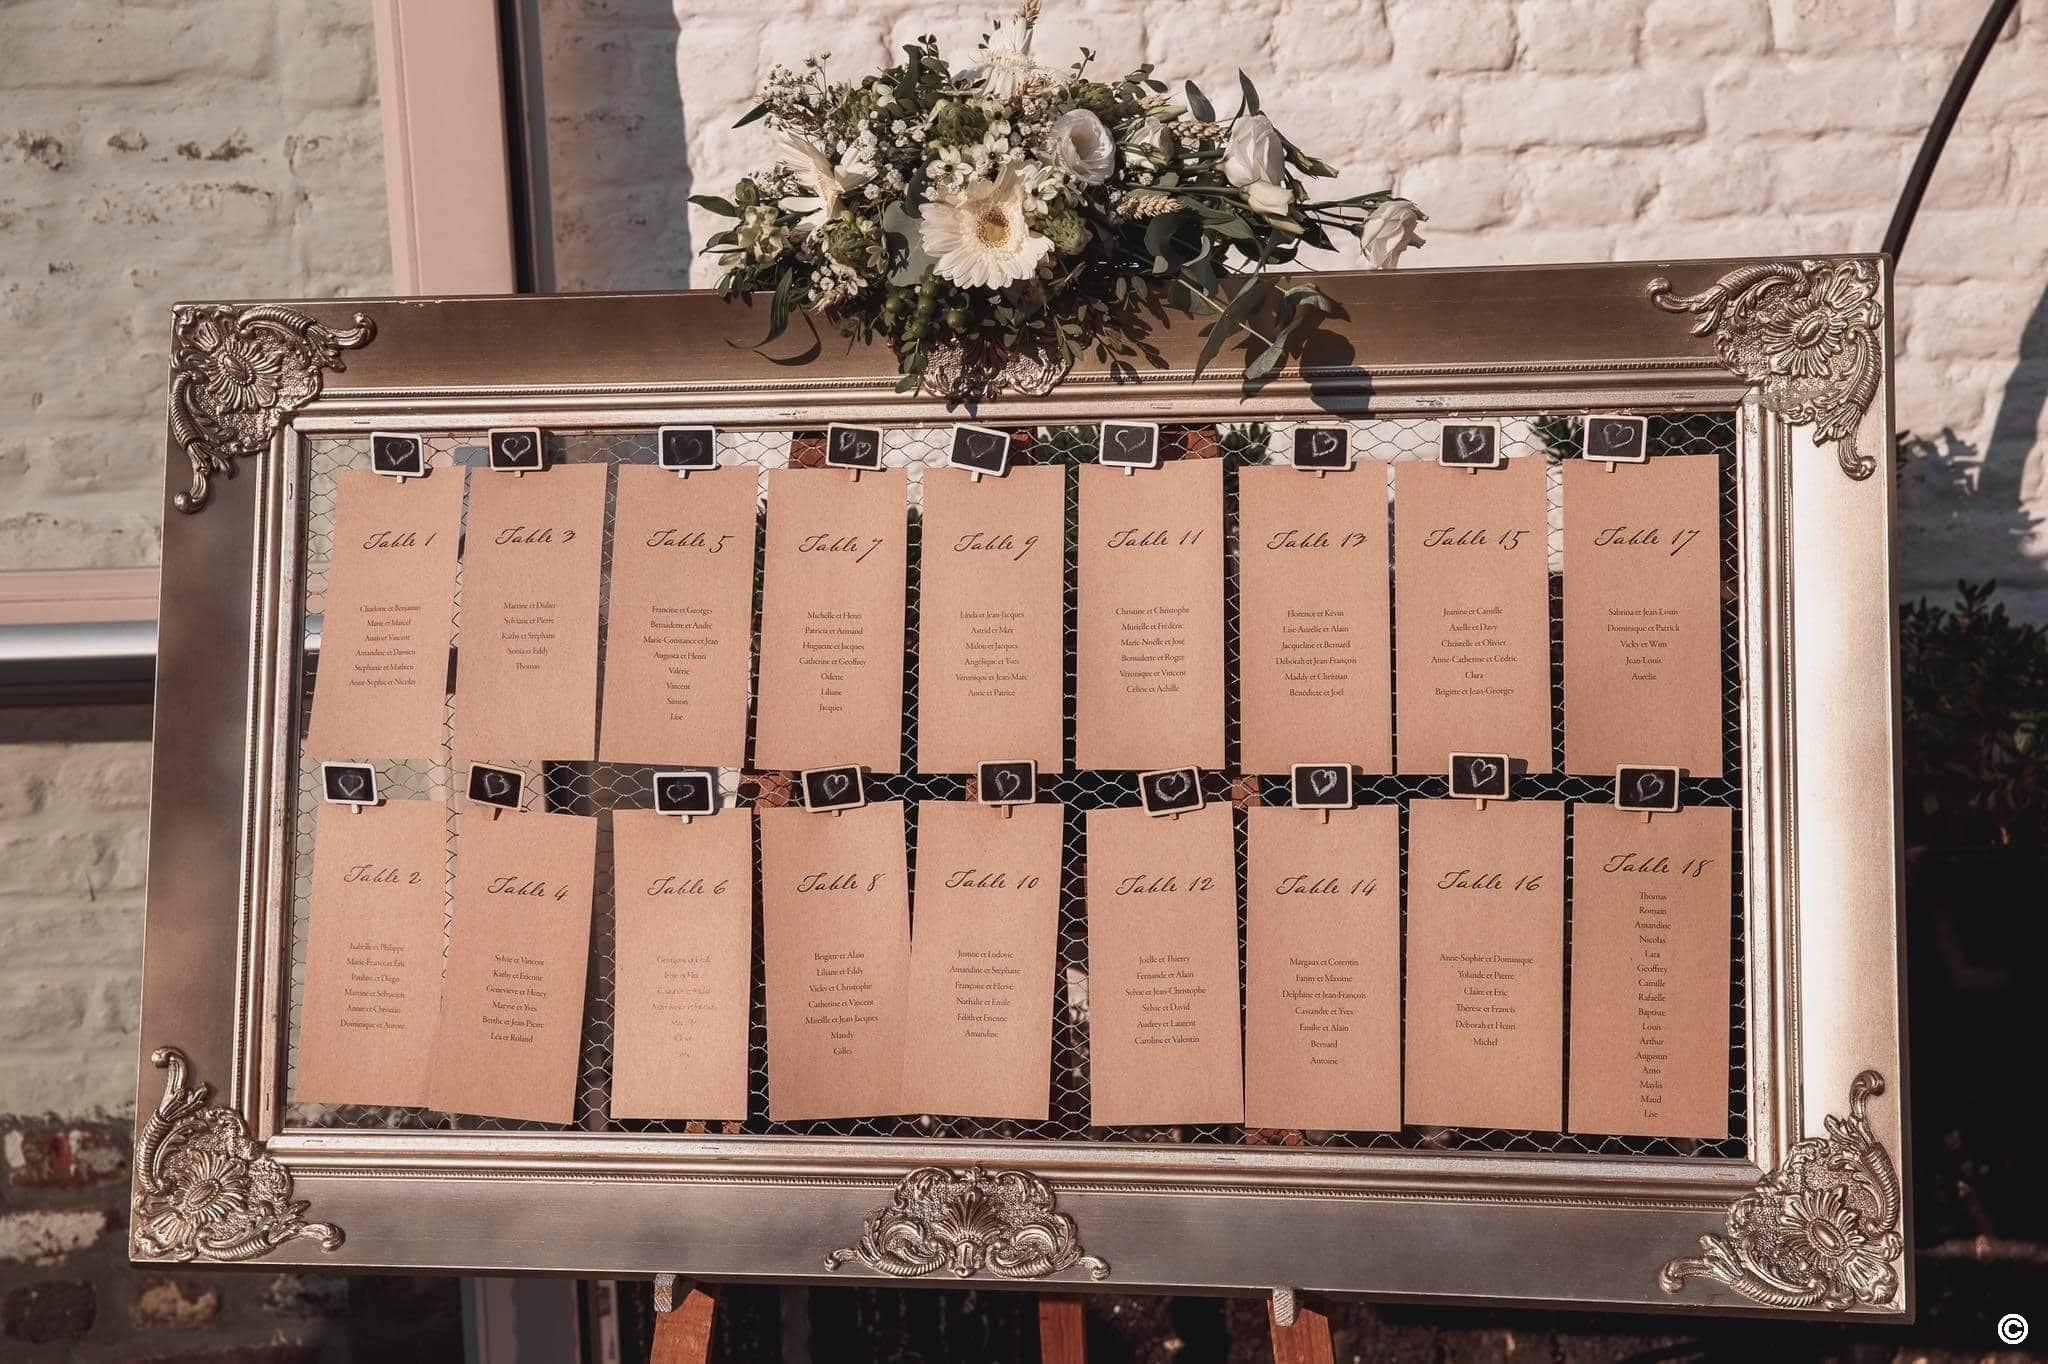 Table 1
Charlotte et Benjamin
Marie et Marcel
Anaïs et Vincent
Amandine et Damien
Stéphanie et Mathieu
Anne-Sophie et Nicolas
Table 3
Martine et Didier
Sylviane et Pierre
Kathy et Stéphane
Sonia et Eddy
Thomas
Table 5
Francine et Georges
Bernadette et André
Marie-Constance et Jean
Augusta et Henri
Valérie
Vincent
Simon
Lise
Table 7
Michelle et Henri
Patricia et Armand
Huguette et Jacques
Catherine et Geoffrey
Odette
Liliane
Jacques
Table 9
Linda et Jean-Jacques
Astrid et Max
Malou et Jacques
Angélique et Yves
Véronique et Jean-Marc
Anne et Patrice
Table 11
Christine et Christophe
Murielle et Frédéric
Marie-Noëlle et José
Bernadette et Roger
Véronique et Vincent
Céline et Achille
Table 13
Florence et Kévin
Lise-Aurélie et Alain
Jacqueline et Bernard
Déborah et Jean-François
Maddy et Christian
Bénédicte et Joël
Table 15
Jeanine et Camille
Axelle et Davy
Christelle et Olivier
Anne-Catherine et Cédric
Clara
Brigitte et Jean-Georges
Table 17
Sabrina et Jean-Louis
Dominique et Patrick
Vicky et Wim
Jean-Louis
Aurélie
Table 2
Isabelle et Philippe
Marie-France et Eric
Pauline et Diego
Martine et Sébastien
Annie et Christian
Dominique et Aurore
Table 4
Sylvie et Vincent
Kathy et Etienne
Geneviève et Henry
Maryse et Yves
Berthe et Jean-Pierre
Léa et Roland
Table 6
Table 8
Brigitte et Alain
Liliane et Eddy
Vicky et Christophe
Catherine et Vincent
Mireille et Jean-Jacques
Mandy
Gilles
Table 10
Justine et Ludovic
Amandine et Stéphane
Françoise et Hervé
Nathalie et Emile
Edith et Etienne
Amandine
Table 12
Joëlle et Thierry
Fernande et Alain
Sylvie et Jean-Christophe
Sylvie et David
Audrey et Laurent
Caroline et Valentin
Table 14
Margaux et Corentin
Fanny et Maxime
Delphine et Jean-François
Cassandre et Yves
Emilie et Alain
Bernard
Antoine
Table 16
Anne-Sophie et Dominique
Yolande et Pierre
Claire et Eric
Thérèse et Francis
Déborah et Henri
Michel
Table 18
Thomas
Romain
Amandine
Nicolas
Lara
Geoffrey
Camille
Rafaëlle
Baptiste
Louis
Arthur
Augustin
Arno
Maylis
Maud
Lise
©